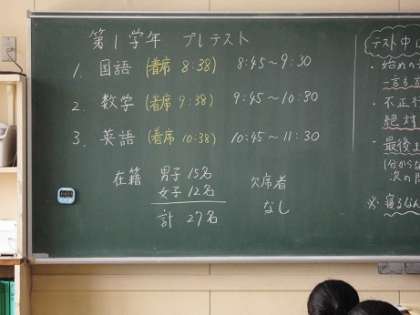 第1学年 プレテスト
1. 国語 (着席 8:38) 8:45〜9:30
2. 数学 (着席 9:38) 9:45〜10:30
3. 英語 (着席 10:38) 10:45〜11:30
在籍 男子 15名
女子 12名
計 27名
欠席者
なし
テスト中
・始めの
一言も
・不正
絶対
・最後ま
(分からな
次の問
※寝るなん